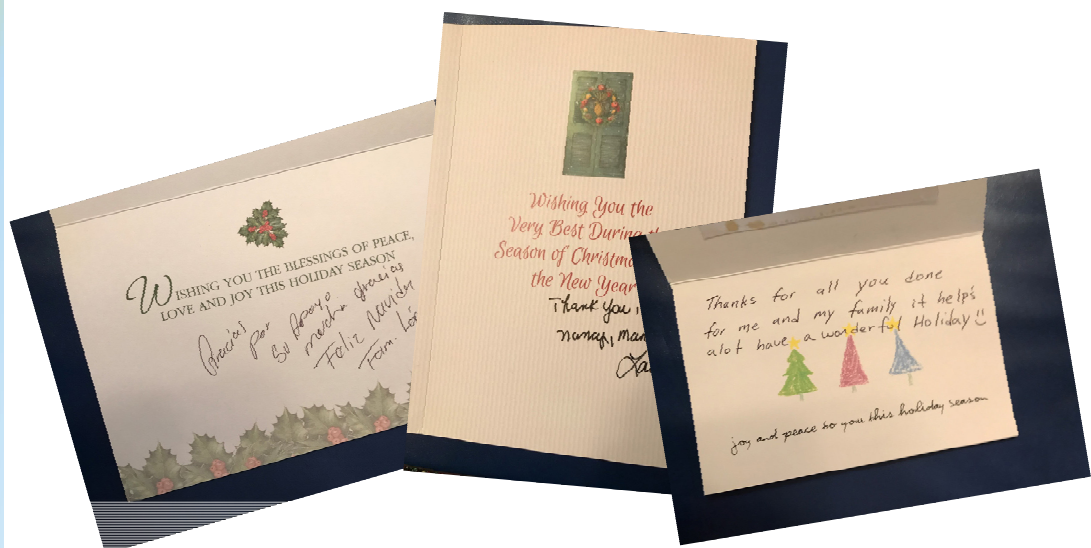 WISHING YOU THE BLESSINGS OF PEACE,
LOVE AND JOY THIS HOLIDAY SEASON
Gracias
por
Su Apoyo
muchas gracias
Feliz Navidad
Fam.
Wishing You the
Very Best During
Season of
the New Year
Thank you,
Nancy,
Thanks for all you done
for me and my family it help's
alot have a wonderful Holiday!!
joy and peace to you this holiday season